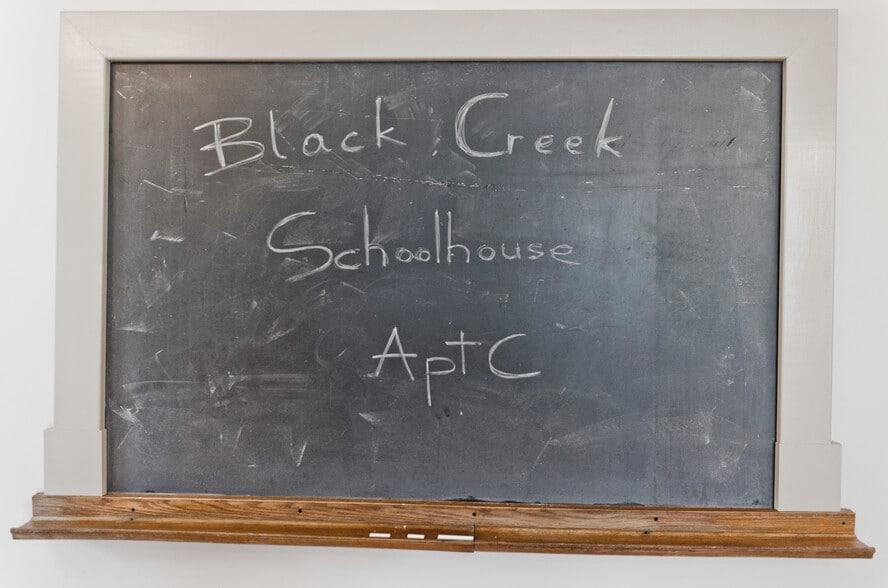 Black Creek
Schoolhouse
Apt C